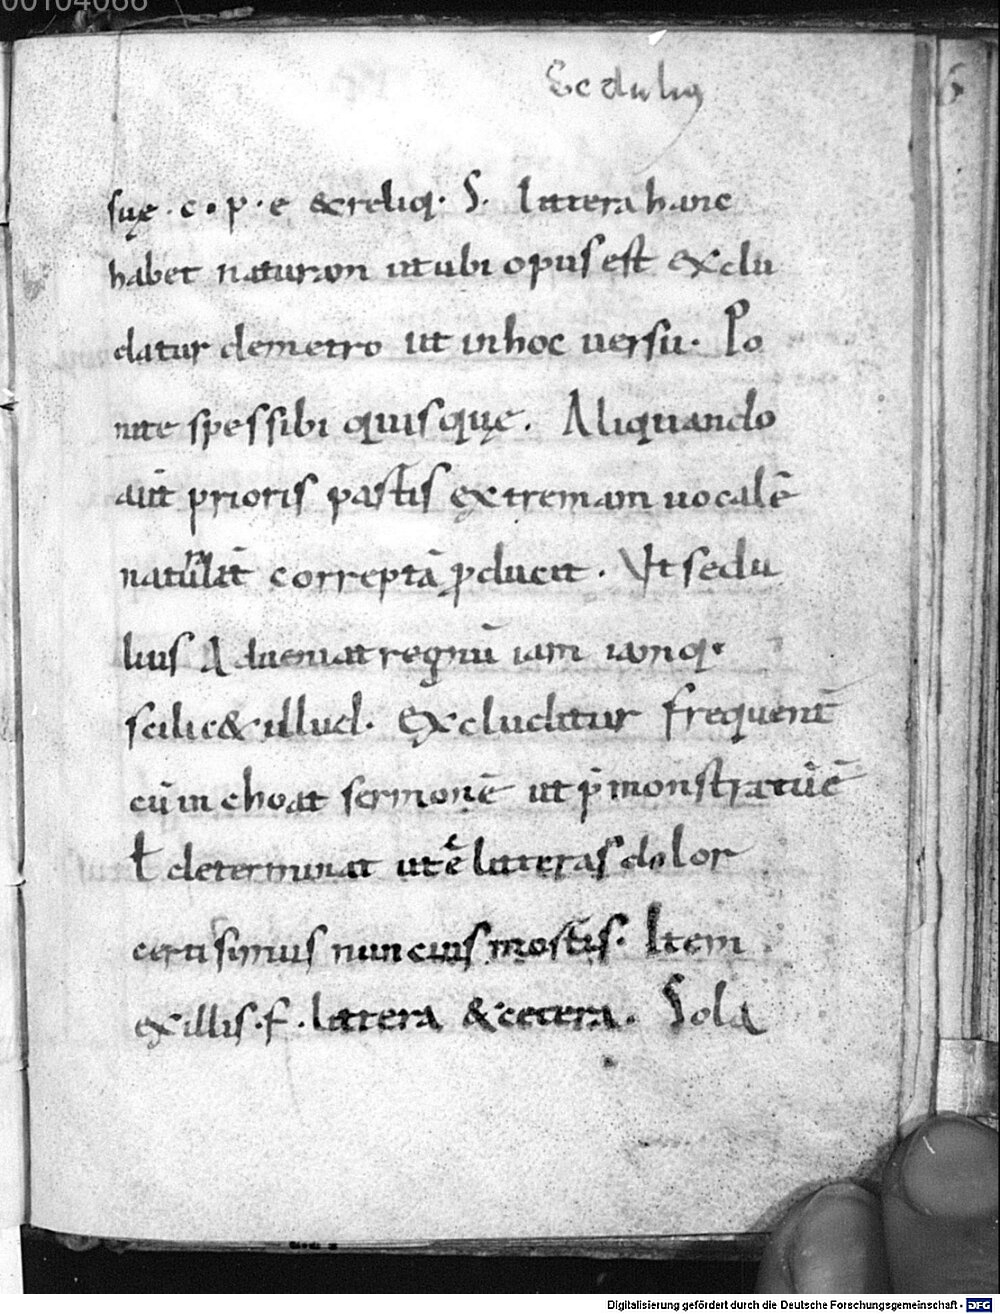 00104066
Sedulius
suę · c · p · e &reliq· S. littera hanc
habet naturam ut ubi opus est exclu
datur demetro ut in hoc uersu. Po
nite spes sibi quisquę. Aliquando
aūt prioris pastis extremam uocalē
naturalit̄ correptā ꝓducit. Ut sedu
lius Adueniat regnū iam iamq·
scilic& illud. Excluditur frequent̄
cū inchoat sermonē ut p̄monstratū ē
ł determinat ut ē litteras dolor
certisimus nuncius mostis. Item
ex illis · f · littera & cetera. Sola
Digitalisierung gefördert durch die Deutsche Forschungsgemeinschaft - DFG